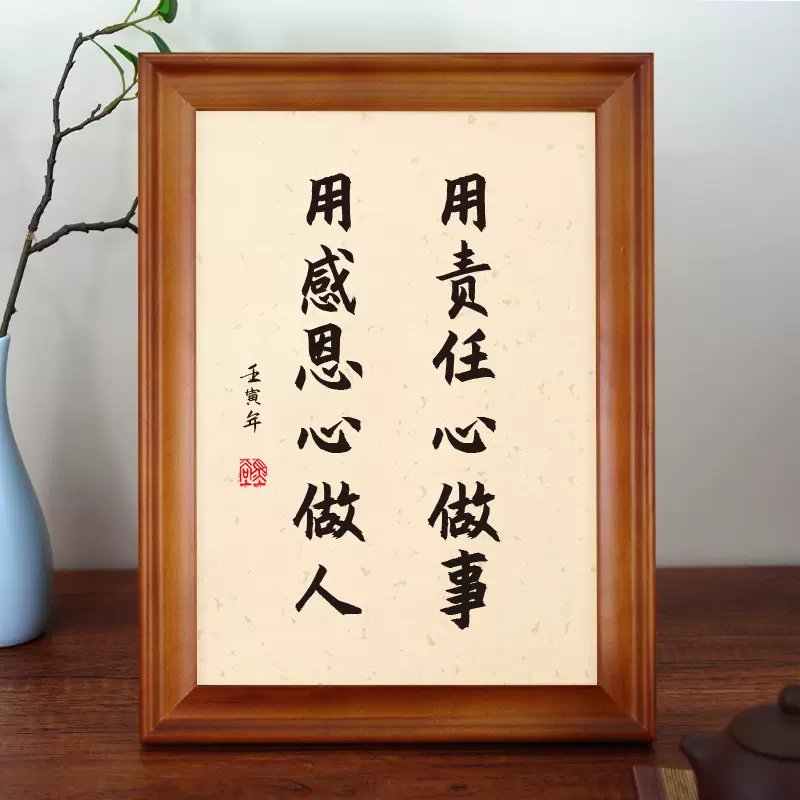 用责任心做事
用感恩心做人
壬寅年